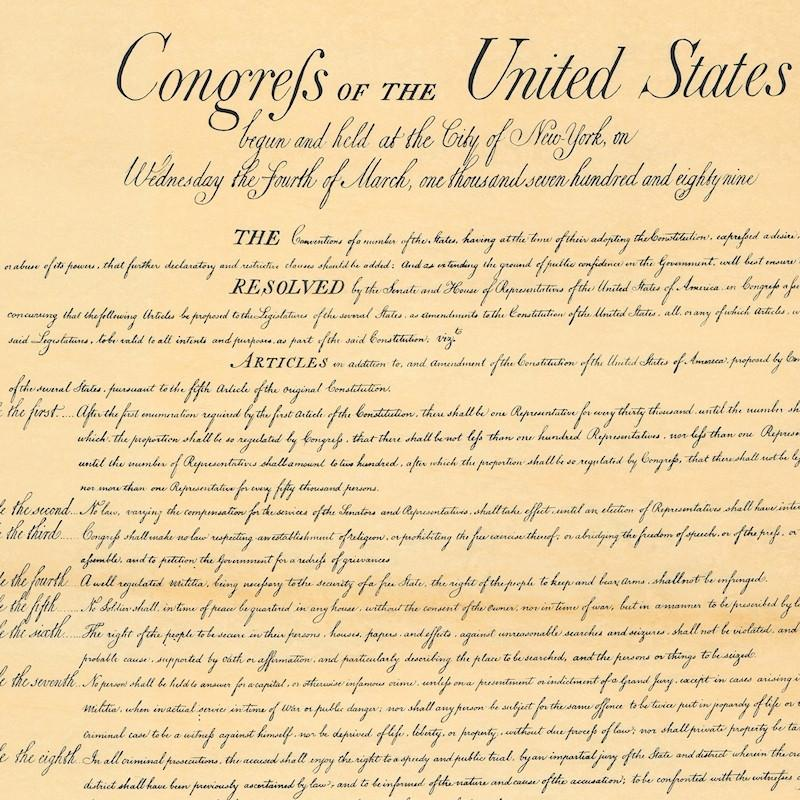 Congreſs OF THE United States
begun and held at the City of New-York, on
Wednesday the Fourth of March, one thousand seven hundred and eighty nine
THE Conventions of a number of the States, having at the time of their adopting the Constitution, expreſsed a desire,
or abuse of its powers, that further declaratory and restrictive clauses should be added: And as extending the ground of public confidence in the Government, will best ensure
RESOLVED by the Senate and House of Representatives of the United States of America, in Congreſs
concurring that the following Articles be proposed to the Legislatures of the several States, as amendments to the Constitution of the United States, all, or any of which Articles,
said Legislatures, to be valid to all intents and purposes, as part of the said Constitution; vizt
ARTICLES in addition to, and Amendment of the Constitution of the United States of America, proposed by
of the several States, pursuant to the fifth Article of the original Constitution.
the first.... After the first enumeration required by the first Article of the Constitution, there shall be one Representative for every thirty thousand, until the number
which, the proportion shall be so regulated by Congreſs, that there shall be not leſs than one hundred Representatives, nor leſs than one
until the number of Representatives shall amount to two hundred, after which the proportion shall be so regulated by Congreſs, that there shall not be
nor more than one Representative for every fifty thousand persons.
the second... No law, varying the compensation for the services of the Senators and Representatives, shall take effect, until an election of Representatives shall have
the third...... Congreſs shall make no law respecting an establishment of religion, or prohibiting the free exercise thereof; or abridging the freedom of speech, or of the preſs, or
aſsemble, and to petition the Government for a redreſs of grievances
the fourth.... A well regulated Militia, being neceſsary to the security of a free State, the right of the people to keep and bear Arms, shall not be infringed.
the fifth...... No Soldier shall, in time of peace be quartered in any house, without the consent of the Owner, nor in time of war, but in a manner to be prescribed by
the sixth..... The right of the people to be secure in their persons, houses, papers, and effects, against unreasonable searches and seizures, shall not be violated, and
probable cause, supported by Oath or affirmation, and particularly describing the place to be searched, and the persons or things to be seized.
the seventh.. No person shall be held to answer for a capital, or otherwise infamous crime, unleſs on a presentment or indictment of a Grand Jury, except in cases arising
Militia, when in actual service in time of War or public danger; nor shall any person be subject for the same offence to be twice put in jeopardy of life or
criminal case to be a witneſs against himself, nor be deprived of life, liberty, or property, without due proceſs of law; nor shall private property be
the eighth.. In all criminal prosecutions, the accused shall enjoy the right to a speedy and public trial, by an impartial jury of the State and district wherein the
district shall have been previously ascertained by law, and to be informed of the nature and cause of the accusation; to be confronted with the witneſses